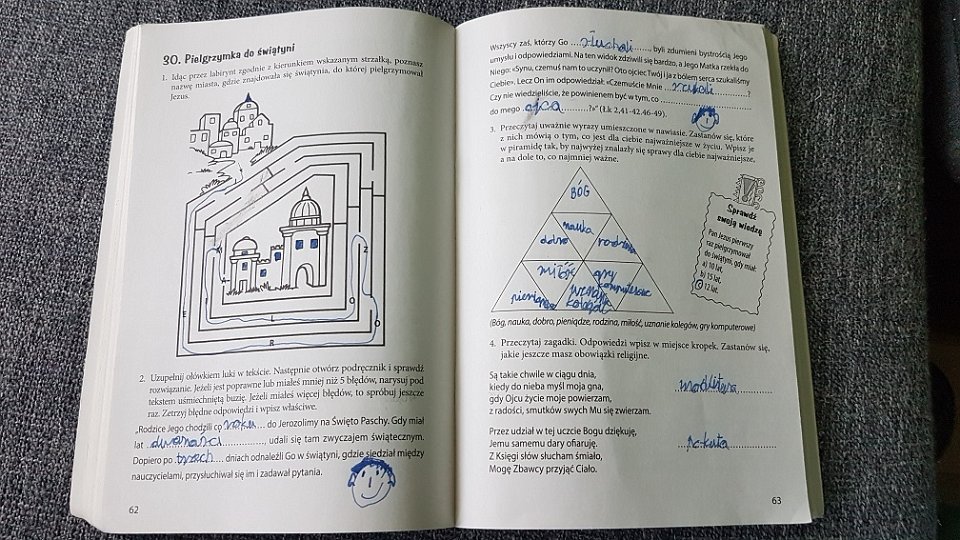 30. Pielgrzymka do świątyni
1. Idąc przez labirynt zgodnie z kierunkiem wskazanym strzałką, poznasz
nazwę miasta, gdzie znajdowała się świątynia, do której pielgrzymował
Jezus.
E
R
O
Z
O
L
I
2. Uzupełnij ołówkiem luki w tekście. Następnie otwórz podręcznik i sprawdź
rozwiązanie. Jeżeli jest poprawne lub miałeś mniej niż 5 błędów, narysuj pod
tekstem uśmiechniętą buzię. Jeżeli miałeś więcej błędów, to spróbuj jeszcze
raz. Zetrzyj błędne odpowiedzi i wpisz właściwe.
„Rodzice Jego chodzili co roku do Jerozolimy na Święto Paschy. Gdy miał
lat dwanaści, udali się tam zwyczajem świątecznym.
Dopiero po trzech dniach odnaleźli Go w świątyni, gdzie siedział między
nauczycielami, przysłuchiwał się im i zadawał pytania.
62
Wszyscy zaś, którzy Go słuchali, byli zdumieni bystrością Jego
umysłu i odpowiedziami. Na ten widok zdziwili się bardzo, a Jego Matka rzekła do
Niego: «Synu, czemuś nam to uczynił? Oto ojciec Twój i ja z bólem serca szukaliśmy
Ciebie». Lecz On im odpowiedział: «Czemuście Mnie szukali ?
Czy nie wiedzieliście, że powinienem być w tym, co
do mego ojca ?»” (Łk 2,41-42.46-49).
3. Przeczytaj uważnie wyrazy umieszczone w nawiasie. Zastanów się, które
z nich mówią o tym, co jest dla ciebie najważniejsze w życiu. Wpisz je
w piramidę tak, by najwyżej znalazły się sprawy dla ciebie najważniejsze,
a na dole to, co najmniej ważne.
BÓG
nauka
dobro rodzina
miłość gry
komputerowe
pieniądze uznanie
kolegów
Sprawdź
swoją wiedzę
Pan Jezus pierwszy
raz pielgrzymował
do świątyni, gdy miał:
a) 10 lat,
b) 15 lat,
c) 12 lat.
(Bóg, nauka, dobro, pieniądze, rodzina, miłość, uznanie kolegów, gry komputerowe)
4. Przeczytaj zagadki. Odpowiedzi wpisz w miejsce kropek. Zastanów się,
jakie jeszcze masz obowiązki religijne.
Są takie chwile w ciągu dnia,
kiedy do nieba myśl moja gna,
gdy Ojcu życie moje powierzam,
z radości, smutków swych Mu się zwierzam.
modlitwa
Przez udział w tej uczcie Bogu dziękuję,
Jemu samemu dary ofiaruję.
Z Księgi słów słucham śmiało,
Mogę Zbawcy przyjąć Ciało.
pokuta
63